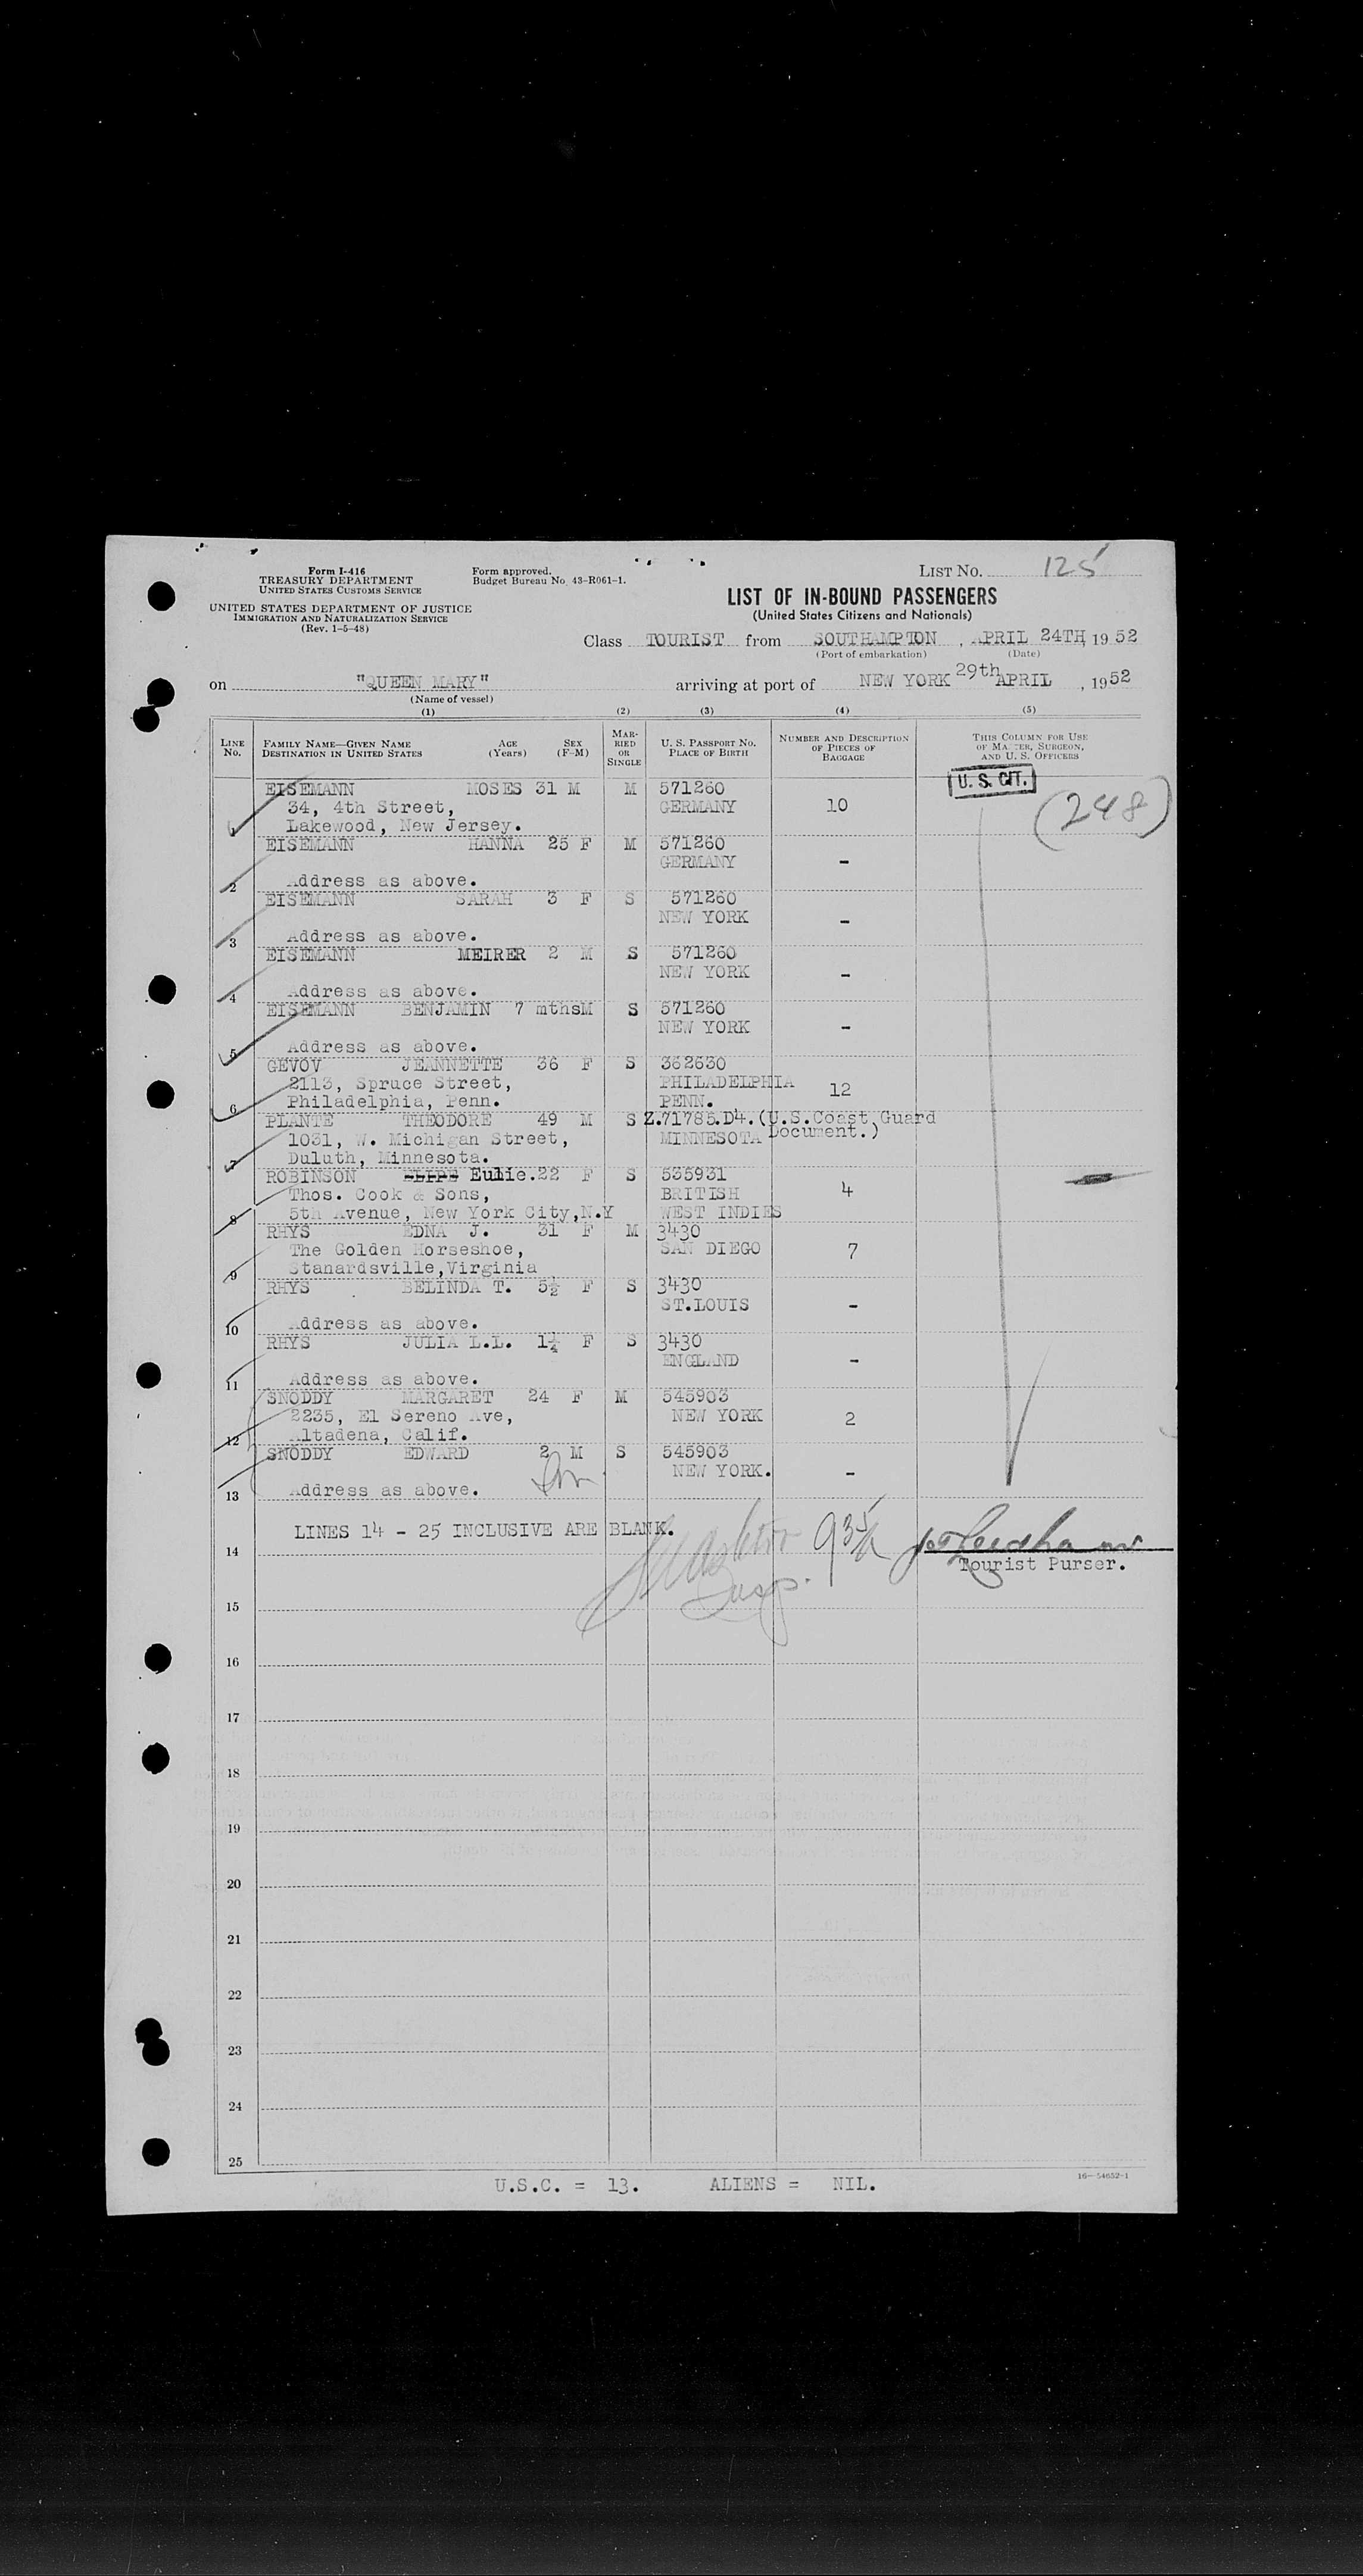 Form I-416
TREASURY DEPARTMENT
UNITED STATES CUSTOMS SERVICE
UNITED STATES DEPARTMENT OF JUSTICE
IMMIGRATION AND NATURALIZATION SERVICE
(Rev. 1-5-48)
Form approved.
Budget Bureau No. 43-R061-1.
LIST NO. 125
LIST OF IN-BOUND PASSENGERS
(United States Citizens and Nationals)
Class TOURIST from SOUTHAMPTON, APRIL 24TH, 1952
(Port of embarkation) (Date)
on "QUEEN MARY" arriving at port of NEW YORK 29th APRIL, 1952
(Name of vessel)
(1) (2) (3) (4) (5)
LINE No. FAMILY NAME—GIVEN NAME DESTINATION IN UNITED STATES AGE (Years) SEX (F-M) MARRIED OR SINGLE U. S. PASSPORT NO. PLACE OF BIRTH NUMBER AND DESCRIPTION OF PIECES OF BAGGAGE THIS COLUMN FOR USE OF MASTER, SURGEON, AND U. S. OFFICERS
U. S. CIT.
(248)
EISEMANN MOSES 31 M M 571260
34, 4th Street, GERMANY 10
1 Lakewood, New Jersey.
EISEMANN HANNA 25 F M 571260
GERMANY -
2 Address as above.
EISEMANN SARAH 3 F S 571260
NEW YORK -
3 Address as above.
EISEMANN MEIRER 2 M S 571260
NEW YORK -
4 Address as above.
EISEMANN BENJAMIN 7 mths M S 571260
NEW YORK -
5 Address as above.
GEVOV JEANNETTE 36 F S 362630
2113, Spruce Street, PHILADELPHIA 12
6 Philadelphia, Penn. PENN.
PLANTE THEODORE 49 M S Z.71785.D4. (U.S.Coast Guard
1031, W. Michigan Street, MINNESOTA Document.)
7 Duluth, Minnesota.
ROBINSON Eulie. 22 F S 535931
Thos. Cook & Sons, BRITISH 4
8 5th Avenue, New York City, N.Y WEST INDIES
RHYS EDNA J. 31 F M 3430
The Golden Horseshoe, SAN DIEGO 7
9 Stanardsville, Virginia
RHYS BELINDA T. 5½ F S 3430
ST.LOUIS -
10 Address as above.
RHYS JULIA L.L. 1¼ F S 3430
ENGLAND -
11 Address as above.
SNODDY MARGARET 24 F M 545903
2235, El Sereno Ave, NEW YORK 2
12 Altadena, Calif.
SNODDY EDWARD 2 M S 545903
NEW YORK. -
13 Address as above.
LINES 14 - 25 INCLUSIVE ARE BLANK.
14
Tourist Purser.
15
16
17
18
19
20
21
22
23
24
25
16—54652-1
U.S.C. = 13. ALIENS = NIL.